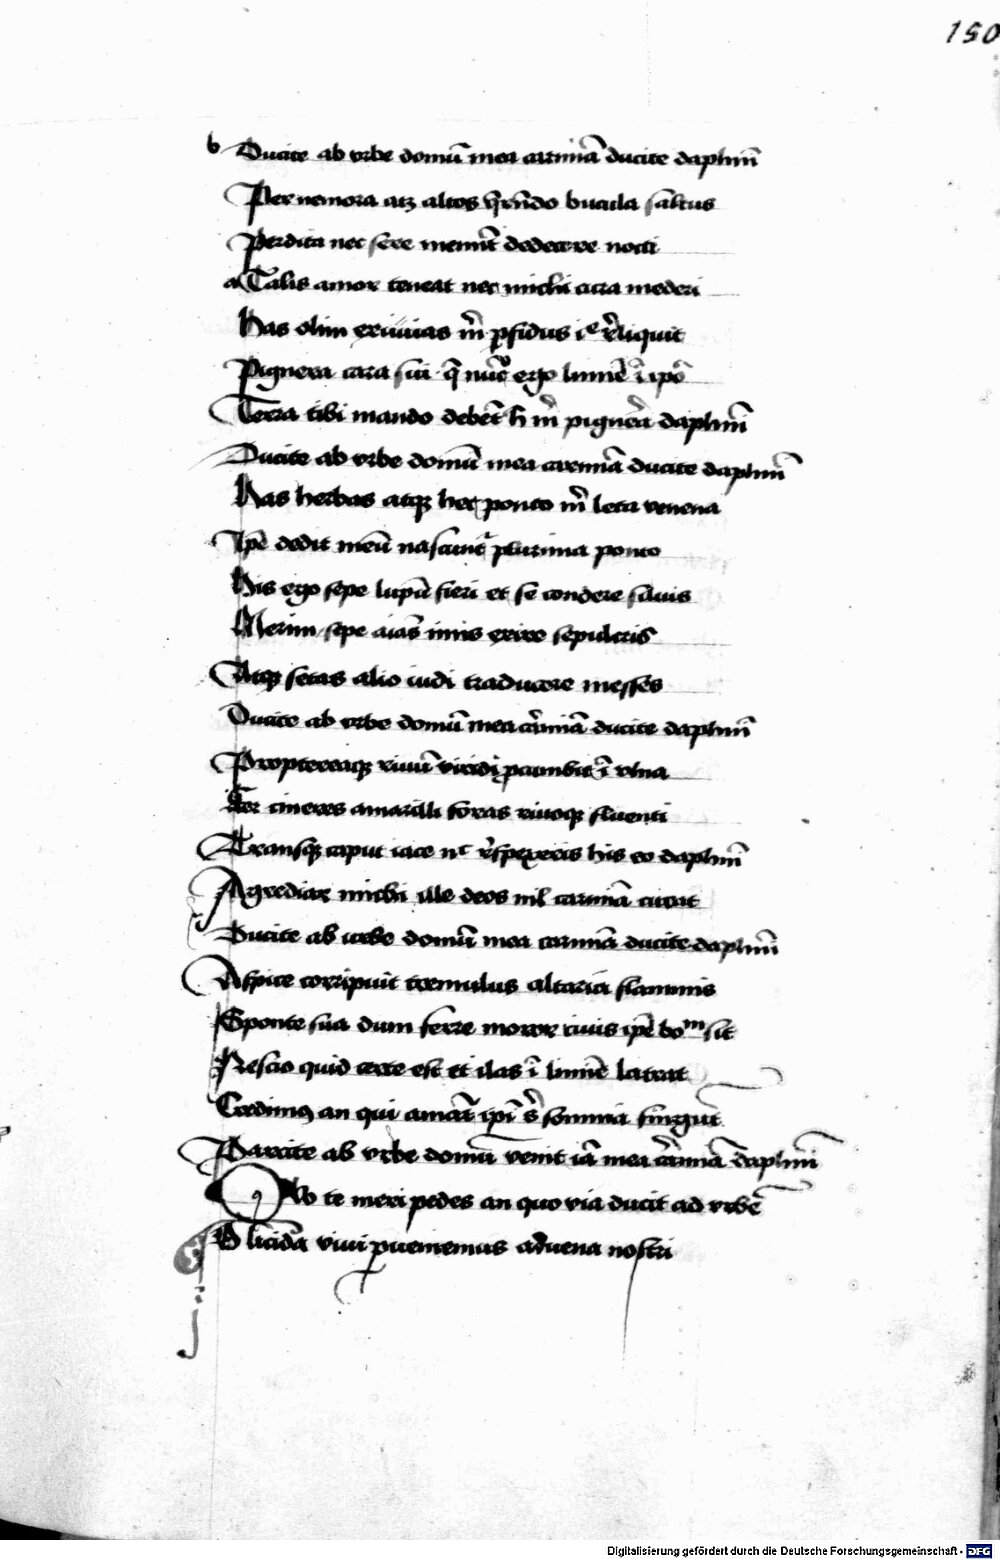 150
b Ducite ab vrbe domū mea carminā ducite daphnī
Per nemora atqꝫ altos q̄rēdo bucula saltus
Perdita nec sere meminit decedere nocti
a Talis amor teneat nec michi cura mederi
Has olim exuuias m̄ pfidus i͡e r̄liquit
Pignera cara sui q̄ nūc ego limīe ī ipō
Terra tibi mando debēt h̄ m̄ pignēa daphnī
Ducite ab vrbe domū mea carminā ducite daphnī
Has herbas atqꝫ hec ponto m̄ lecta venena
Ipē dedit meū nascunt᷑ plurima ponto
His ego sepe lupū fieri et se condere siluis
Merim sepe aīas imis exire sepulcris
Atqꝫ satas alio uidi traducere messes
Ducite ab vrbe domū mea carminā ducite daphnī
Propterеaqꝫ riuū viridi pcumbit ī vlua
Fer cineres amarilli foras riuoqꝫ fluenti
Transqꝫ caput iace nᶜ r̄spexeris his eo daphnī
Agrediar michi ille deos nil carminā curat
Ducite ab urbe domū mea carminā ducite daphnī
Aspice corripuit tremulus altaria flammis
Sponte sua dum ferre moror ciuis ipē boᵐ sit
Nescio quid certe est et ilas ī limīe latrat
Credimꝰ an qui amāt ipī s̄ somnia fingūt
Parcite ab vrbe domū venit iā mea carminā daphnī
Qvo te meri pedes an quo via ducit ad vrbē
O licida viui puenimus aduena nostri
Digitalisierung gefördert durch die Deutsche Forschungsgemeinschaft - DFG